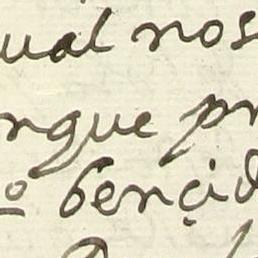 ual nos
ngue pr
o bençid